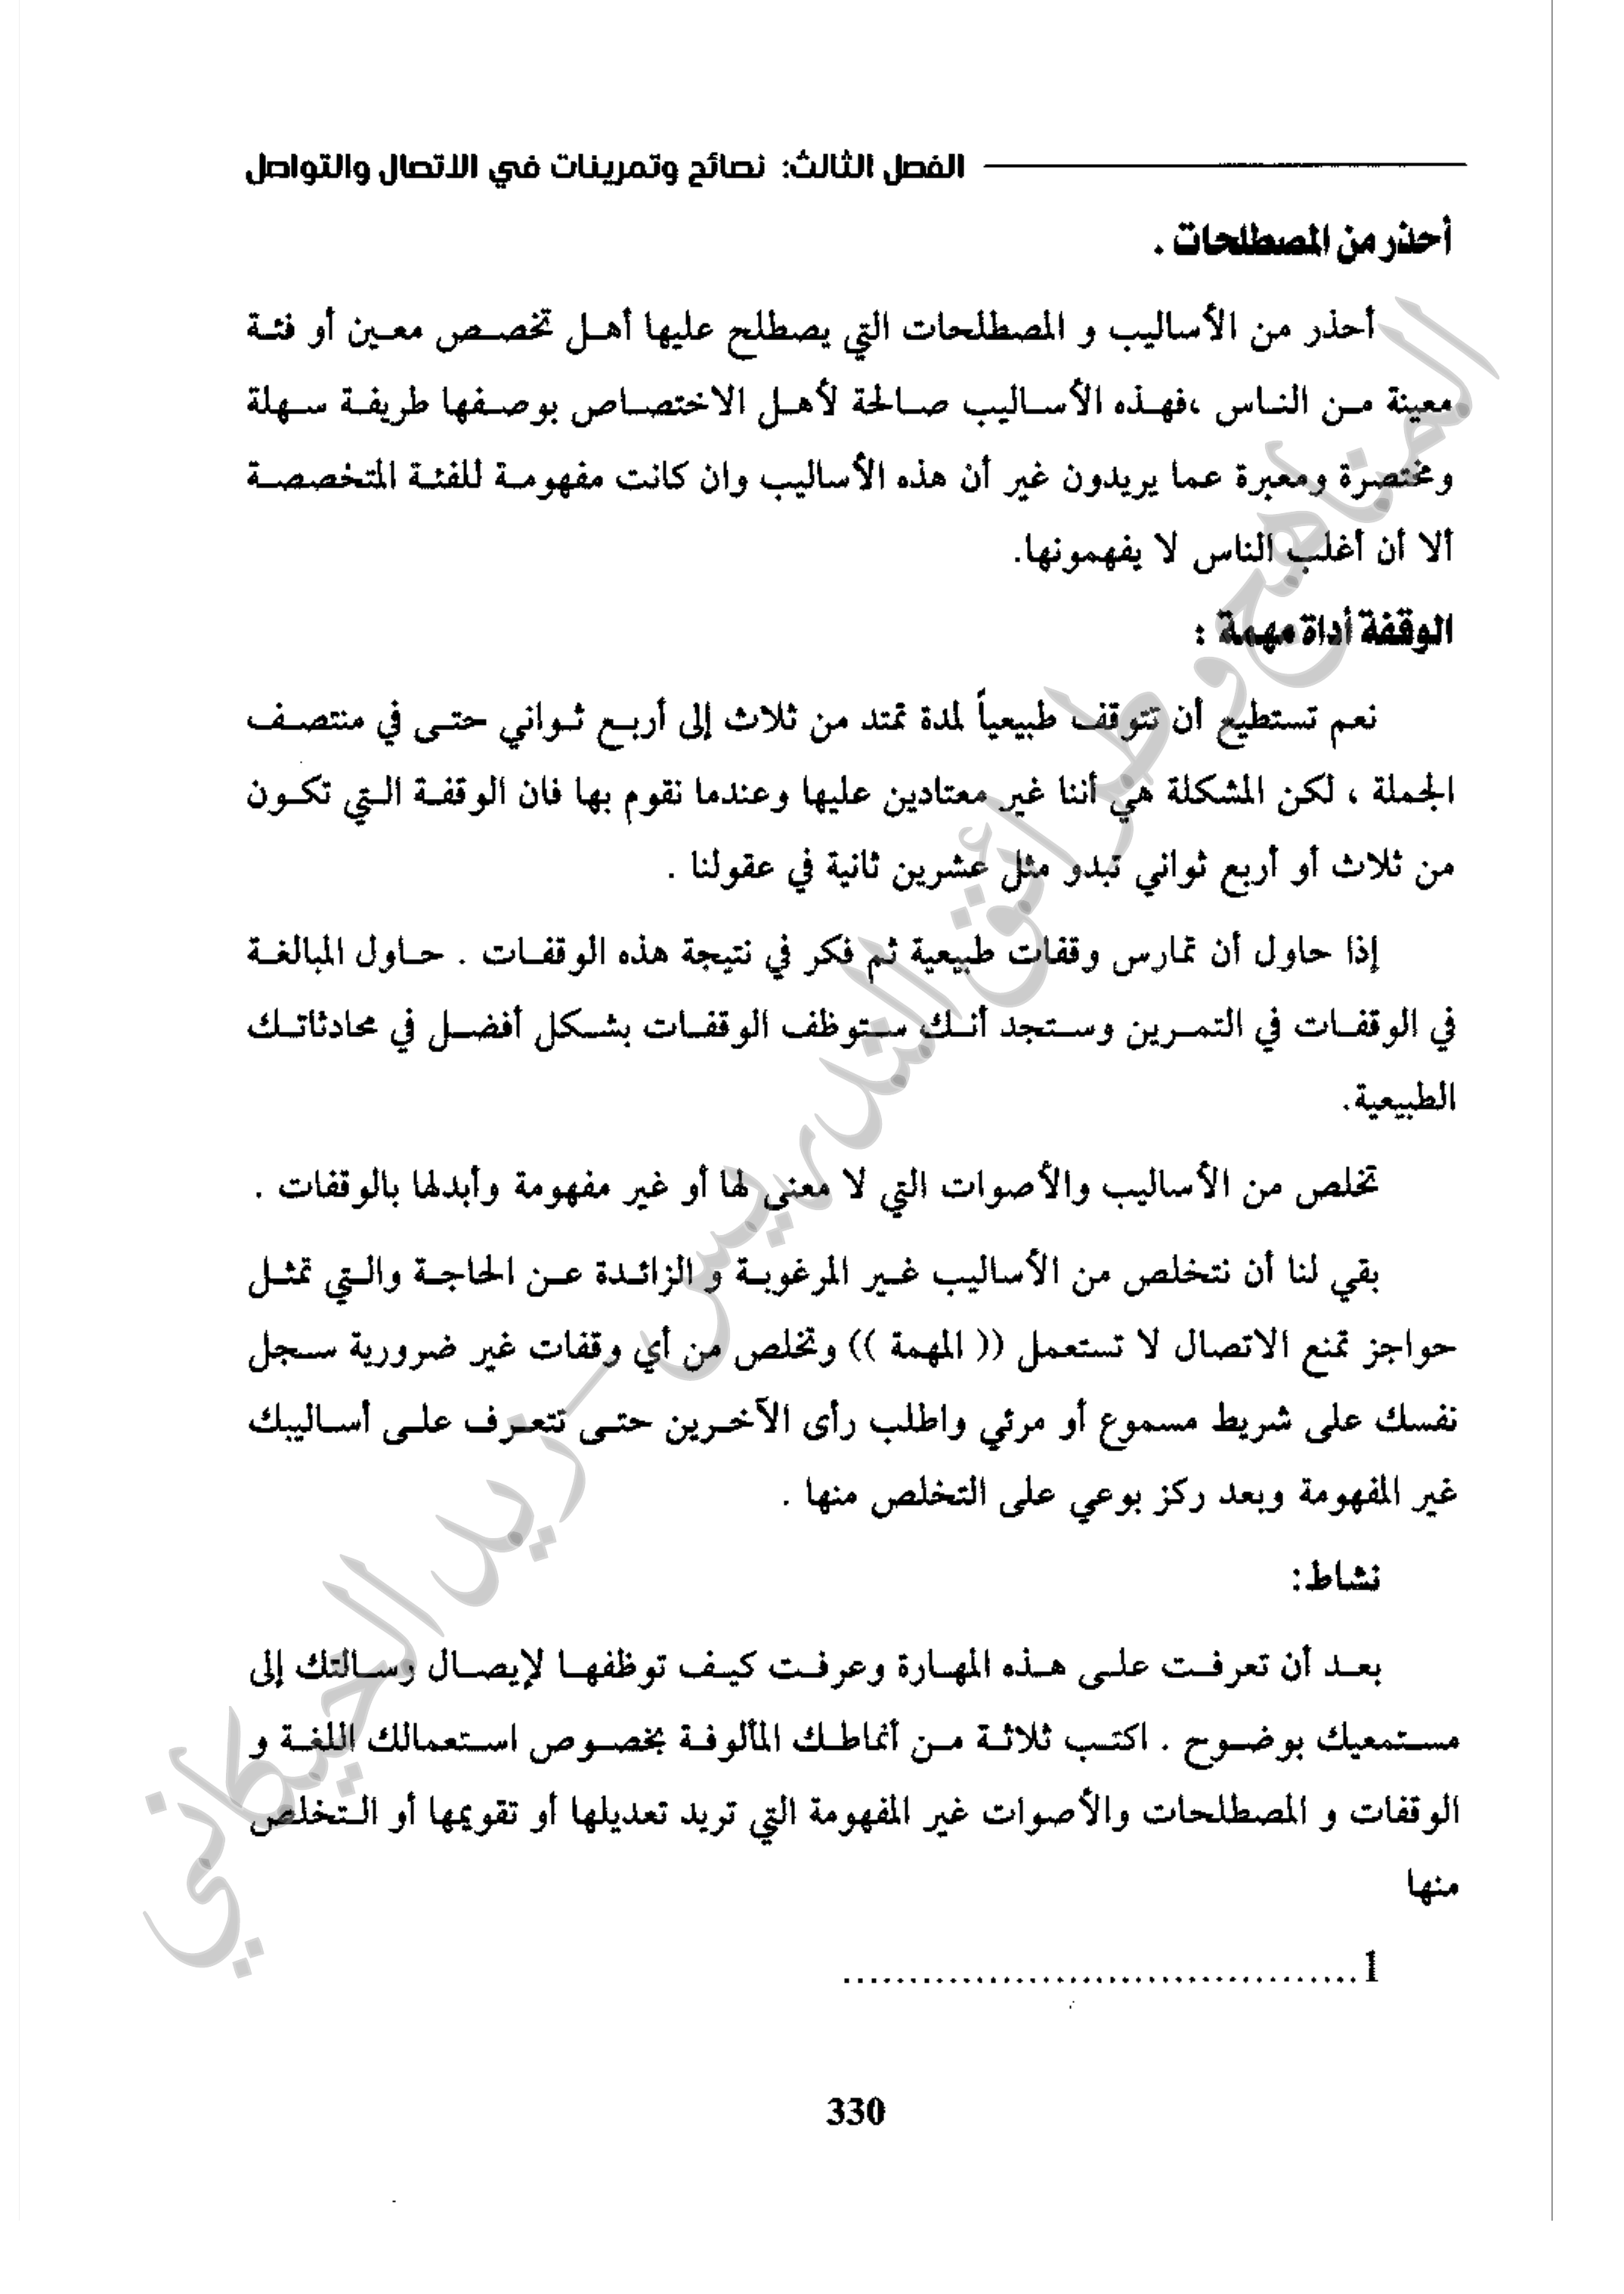 الفصل الثالث: نصائح وتمرينات في الاتصال والتواصل
أحذر من المصطلحات .
أحذر من الأساليب و المصطلحات التي يصطلح عليها أهل تخصص معين أو فئة
معينة من الناس ،فهذه الأساليب صالحة لأهل الاختصاص بوصفها طريفة سهلة
ومختصرة ومعبرة عما يريدون غير أن هذه الأساليب وان كانت مفهومة للفئة المتخصصة
ألا أن أغلب الناس لا يفهمونها.
الوقفة أداة مهمة :
نعم تستطيع أن تتوقف طبيعياً لمدة تمتد من ثلاث إلى أربع ثواني حتى في منتصف
الجملة ، لكن المشكلة هي أننا غير معتادين عليها وعندما نقوم بها فان الوقفة التي تكون
من ثلاث أو أربع ثواني تبدو مثل عشرين ثانية في عقولنا .
إذا حاول أن تمارس وقفات طبيعية ثم فكر في نتيجة هذه الوقفات . حاول المبالغة
في الوقفات في التمرين وستجد أنك ستوظف الوقفات بشكل أفضل في محادثاتك
الطبيعية.
تخلص من الأساليب والأصوات التي لا معنى لها أو غير مفهومة وأبدلها بالوقفات .
بقي لنا أن نتخلص من الأساليب غير المرغوبة و الزائدة عن الحاجة والتي تمثل
حواجز تمنع الاتصال لا تستعمل (( المهمة )) وتخلص من أي وقفات غير ضرورية سجل
نفسك على شريط مسموع أو مرئي واطلب رأى الآخرين حتى تتعرف على أساليبك
غير المفهومة وبعد ركز بوعي على التخلص منها .
نشاط:
بعد أن تعرفت على هذه المهارة وعرفت كيف توظفها لإيصال رسالتك إلى
مستمعيك بوضوح . اكتب ثلاثة من أنماطك المألوفة بخصوص استعمالك اللغة و
الوقفات و المصطلحات والأصوات غير المفهومة التي تريد تعديلها أو تقويمها أو التخلص
منها
1.......................................
330
المناهج وطرائق التدريس – ريد الحيكاني